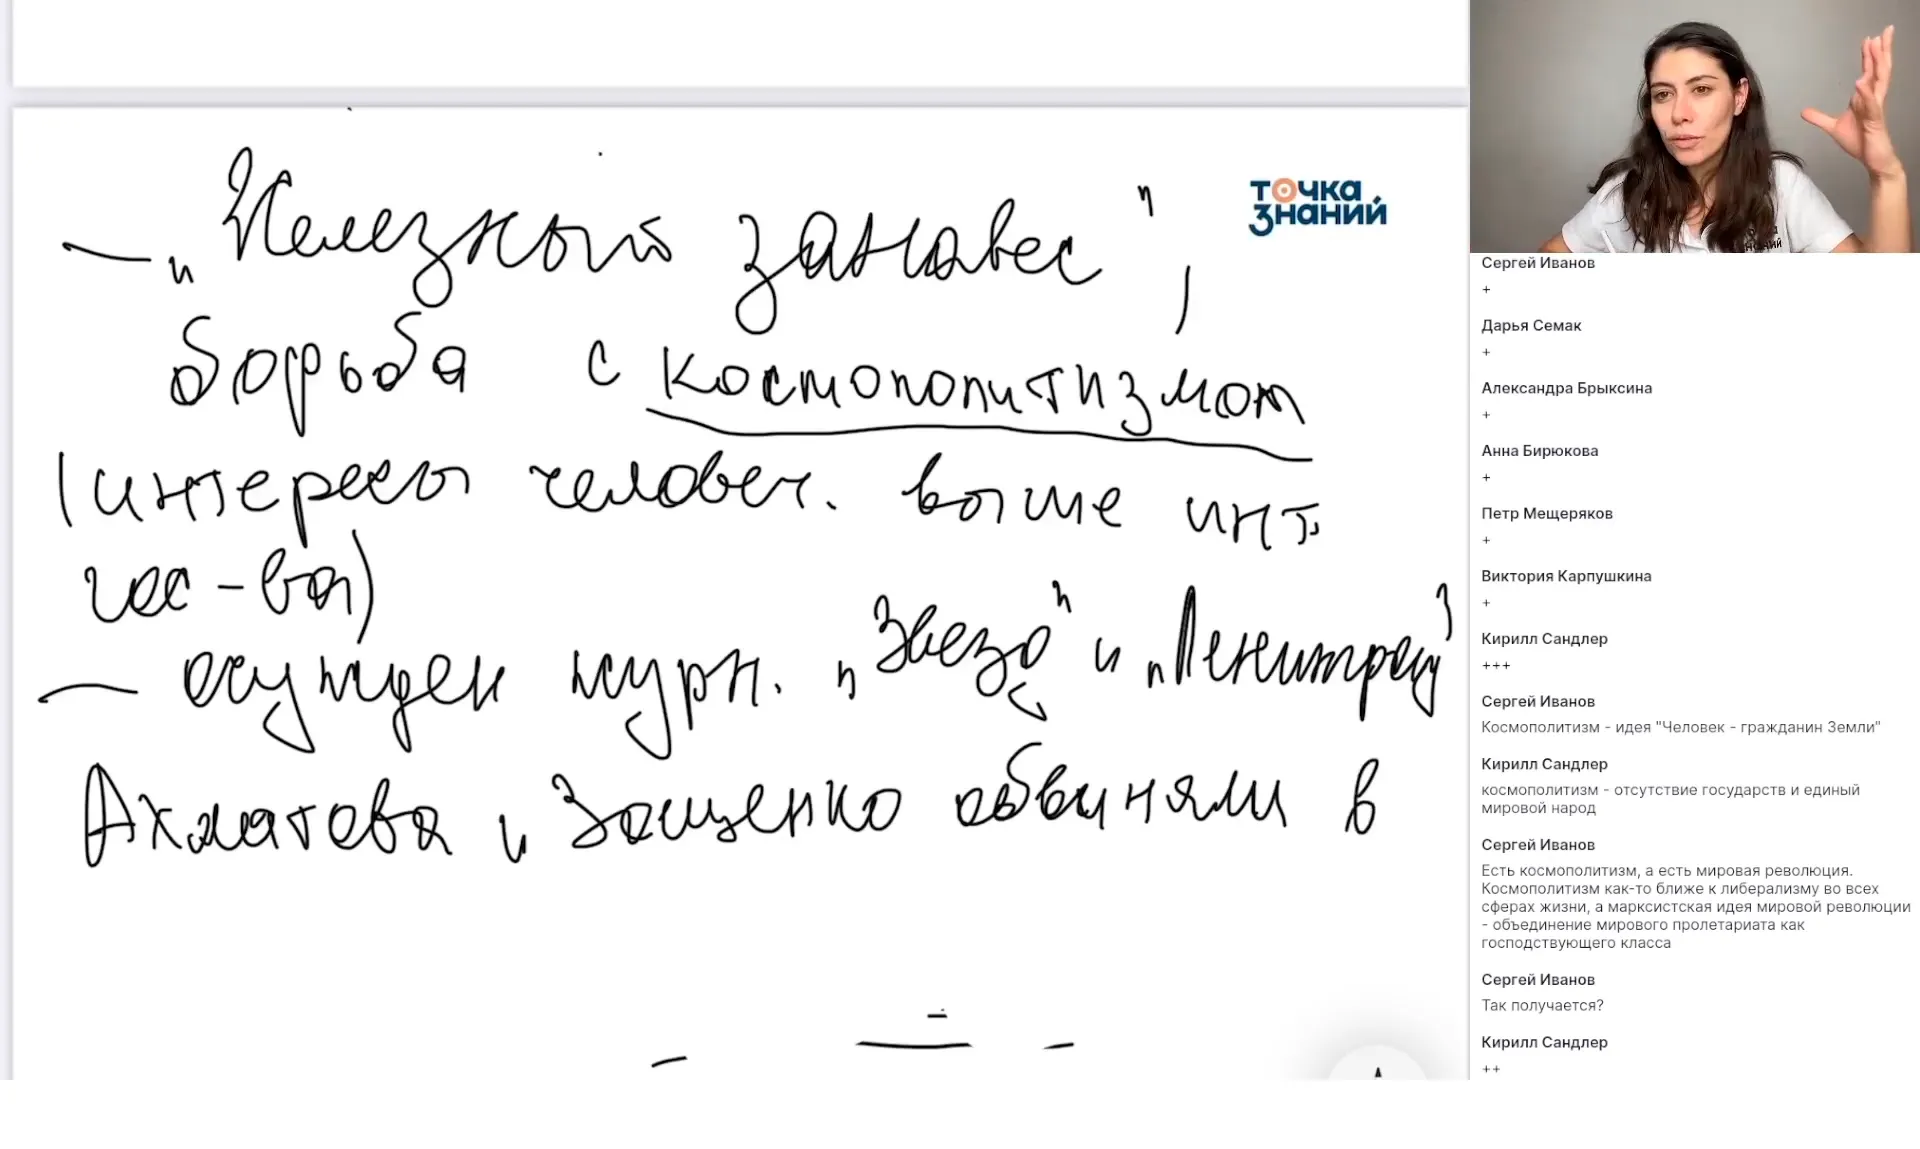 — „Железный занавес",
борьба с космополитизмом
(интересы человеч. выше инт.
гос-ва)
— осужден журн. „Звезда" и „Ленинград"
Ахматова и Зощенко обвиняли в
точка
знаний
Сергей Иванов
+
Дарья Семак
+
Александра Брыксина
+
Анна Бирюкова
+
Петр Мещеряков
+
Виктория Карпушкина
+
Кирилл Сандлер
+++
Сергей Иванов
Космополитизм - идея "Человек - гражданин Земли"
Кирилл Сандлер
космополитизм - отсутствие государств и единый
мировой народ
Сергей Иванов
Есть космополитизм, а есть мировая революция.
Космополитизм как-то ближе к либерализму во всех
сферах жизни, а марксистская идея мировой революции
- объединение мирового пролетариата как
господствующего класса
Сергей Иванов
Так получается?
Кирилл Сандлер
++